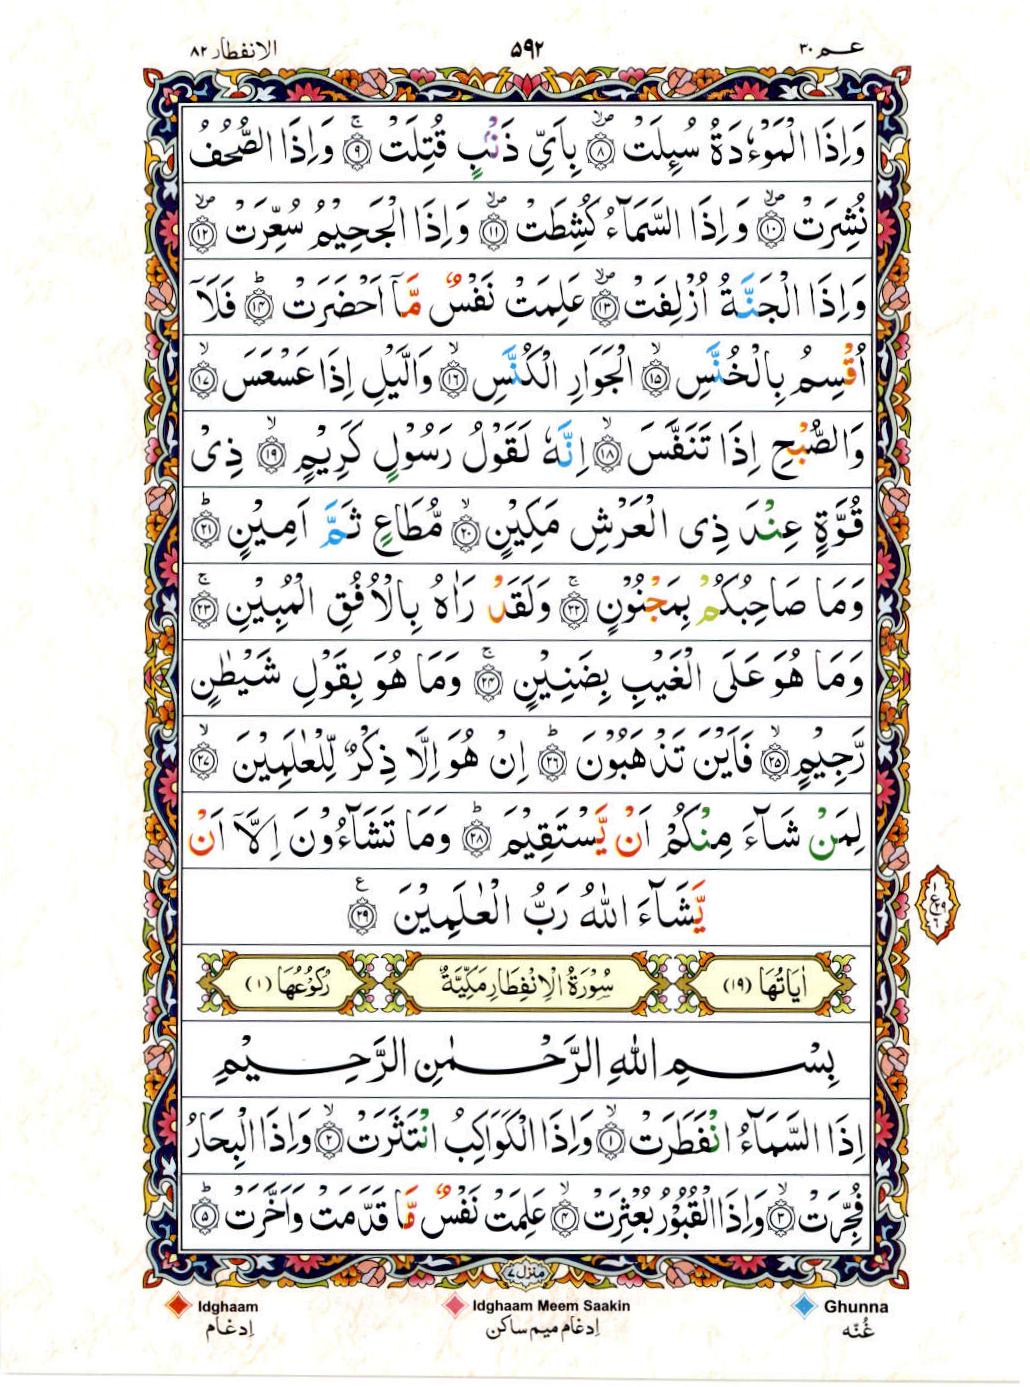 عم ۳۰ ۵۹۲ الانفطار ۸۲
وَاِذَا الْمَوْءٗدَةُ سُىِٕلَتْ ۙ۸ بِاَىِّ ذَنْۢبٍ قُتِلَتْ ۚ۹ وَاِذَا الصُّحُفُ
نُشِرَتْ ۙ۱۰ وَاِذَا السَّمَآءُ كُشِطَتْ ۙ۱۱ وَاِذَا الْجَحِيْمُ سُعِّرَتْ ۙ۱۲
وَاِذَا الْجَنَّةُ اُزْلِفَتْ ۙ۱۳ عَلِمَتْ نَفْسٌ مَّاۤ اَحْضَرَتْ ؕ۱۴ فَلَاۤ
اُقْسِمُ بِالْخُنَّسِ ۙ۱۵ الْجَوَارِ الْكُنَّسِ ۙ۱۶ وَالَّيْلِ اِذَا عَسْعَسَ ۙ۱۷
وَالصُّبْحِ اِذَا تَنَفَّسَ ۙ۱۸ اِنَّهٗ لَقَوْلُ رَسُوْلٍ كَرِيْمٍ ۙ۱۹ ذِىْ
قُوَّةٍ عِنْدَ ذِى الْعَرْشِ مَكِيْنٍ ۙ۲۰ مُّطَاعٍ ثَمَّ اَمِيْنٍ ؕ۲۱
وَمَا صَاحِبُكُمْ بِمَجْنُوْنٍ ۚ۲۲ وَلَقَدْ رَاٰهُ بِالْاُفُقِ الْمُبِيْنِ ۚ۲۳
وَمَا هُوَ عَلَى الْغَيْبِ بِضَنِيْنٍ ۚ۲۴ وَمَا هُوَ بِقَوْلِ شَيْطٰنٍ
رَّجِيْمٍ ۙ۲۵ فَاَيْنَ تَذْهَبُوْنَ ؕ۲۶ اِنْ هُوَ اِلَّا ذِكْرٌ لِّلْعٰلَمِيْنَ ۙ۲۷
لِمَنْ شَآءَ مِنْكُمْ اَنْ يَّسْتَقِيْمَ ؕ۲۸ وَمَا تَشَآءُوْنَ اِلَّاۤ اَنْ
يَّشَآءَ اللّٰهُ رَبُّ الْعٰلَمِيْنَ ۲۹ ع
اٰيَاتُهَا (۱۹) سُوْرَةُ الْاِنْفِطَارِ مَكِّيَّةٌ رُكُوْعُهَا (۱)
بِسْمِ اللّٰهِ الرَّحْمٰنِ الرَّحِيْمِ
اِذَا السَّمَآءُ انْفَطَرَتْ ۙ۱ وَاِذَا الْكَوَاكِبُ انْتَثَرَتْ ۙ۲ وَاِذَا الْبِحَارُ
فُجِّرَتْ ۙ۳ وَاِذَا الْقُبُوْرُ بُعْثِرَتْ ۙ۴ عَلِمَتْ نَفْسٌ مَّا قَدَّمَتْ وَاَخَّرَتْ ؕ۵
منزل ۷
Idghaam Idghaam Meem Saakin Ghunna
اِدغام اِدغام میم ساکن غُنّه